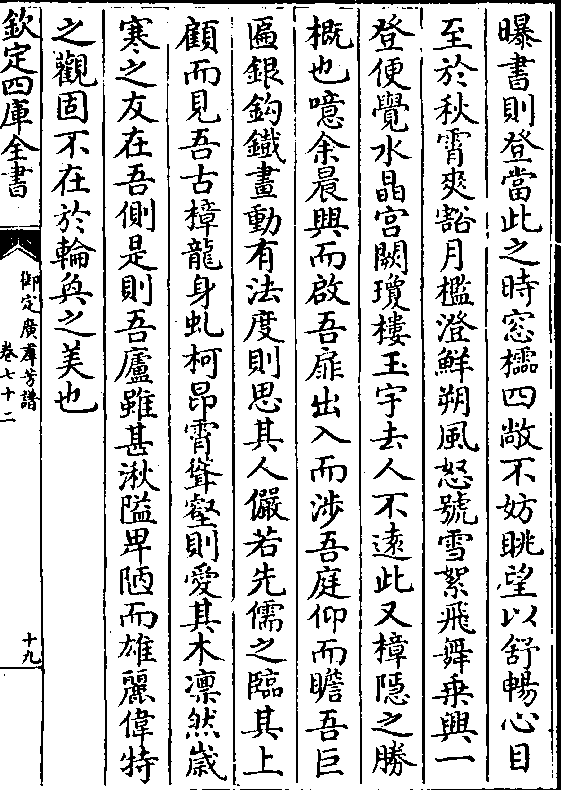 曝書則登當此之時窓櫺四敞不妨眺望以舒暢心目
至於秋霄爽豁月檻澄鮮朔風怒號雪絮飛舞乗興一
登便覺水晶宫闕瓊樓玉宇去人不逺此又樟隠之勝
概也噫余晨興而啟吾扉出入而涉吾庭仰而瞻吾巨
匾銀鈎鐵畫動有法度則思其人儼若先儒之臨其上
顧而見吾古樟龍身虬柯昂霄聳壑則愛其木凛然嵗
寒之友在吾側是則吾廬雖甚湫隘卑陋而雄麗偉特
之觀固不在於輪奐之美也
欽定四庫全書
御定廣羣芳譜
卷七十二
十九